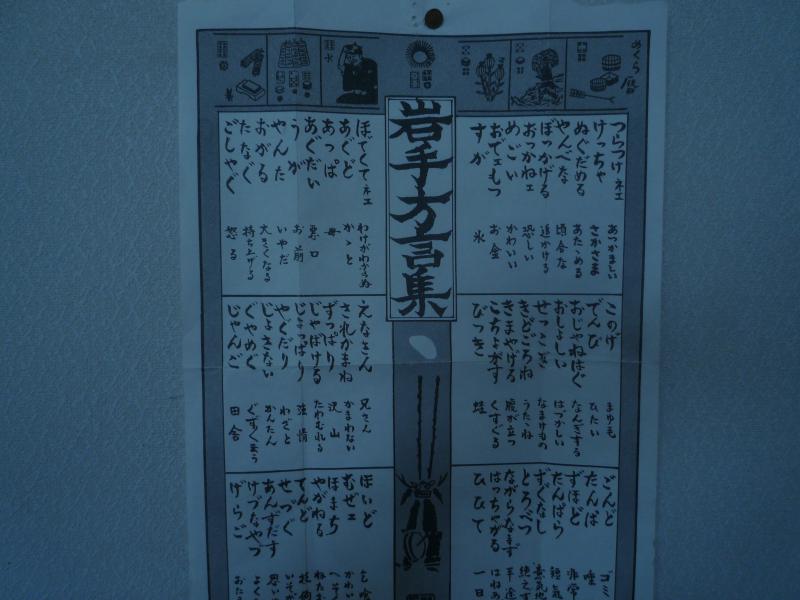 めくら暦
岩手方言集
つらつけネェ あつかましい
けっちゃ さかさま
ぬぐだめる あたゝめる
やんべな 頃合な
ぼっかげる 追かける
おっかねェ 恐しい
めごい かわいい
おでェもつ お金
すが 氷
ほでくてネェ わけがわからぬ
あぐど かゝと
あっぱ 母
あぐだい 悪口
うが お前
やんた いやだ
おがる 大きくなる
たなぐ 持ち上げる
ごしゃぐ 怒る
このげ まゆ毛
でんび ひたい
おじゃねはぐ なんぎする
おしょしい はづかしい
せっこぎ なまけもの
きどごろね うたゝね
きまやげる 腹が立つ
こちょがす くすぐる
びっき 蛙
えなさん 兄さん
されかまね かまわない
ずっぱり 沢山
じゃぼける たわむれる
じょっぱり 強情
やぐだり わざと
じょさない かんたん
ぐやめぐ ぐずぐず云う
じゃんご 田舎
ごんど ゴミ
たんぱ 唾
ずほど 非常
たんぱら 短気
ずぐなし 意気地
とろぺつ 絶えず
ながらなまず 半途
はっちゃがる はねあ
ひして 一日
ほいど 乞喰
むぜェ かわい
ほまち へそ
やがねる
てんど 技術
せづぐ いそが
あんずだす 思い
けづなやつ よく
げらご おた